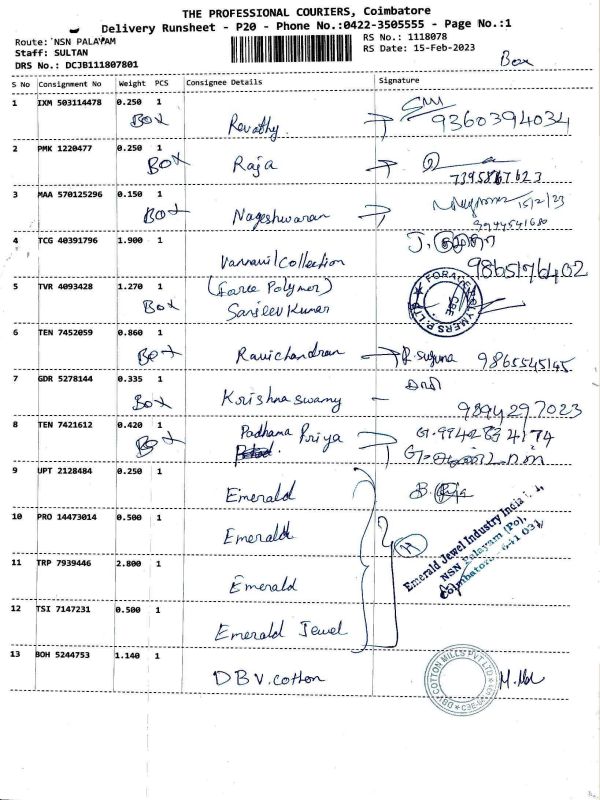 THE PROFESSIONAL COURIERS, Coimbatore
Delivery Runsheet - P20 - Phone No.:0422-3505555 - Page No.:1
Route: NSN PALAYAM
RS No.: 1118078
Staff: SULTAN
RS Date: 15-Feb-2023
DRS No.: DCJB111807801
Box
S No Consignment No Weight PCS Consignee Details Signature
1 IXM 503114478 0.250 1
BOX Revathy 9360394034
2 PMK 1220477 0.250 1
BOX Raja
3 MAA 570125296 0.150 1
BOX Nageshwaran 15/2/23
4 TCG 40391796 1.900 1
Vannavil Collection 9865176402
5 TVR 4093428 1.270 1 (Force Polymer)
Box Sanjeev Kumar
6 TEN 7452059 0.860 1
BOX Ravichandran R. Suguna 9865545145
7 GDR 5278144 0.335 1
BOX Krishna swamy 9894297023
8 TEN 7421612 0.420 1
BOX Padhama Priya
9 UPT 2128484 0.250 1
Emerald
10 PRO 14473014 0.500 1
Emerald
Emerald Jewel Industry India
NSN Palayam (Po),
Coimbatore - 641 031
11 TRP 7939446 2.800 1
Emerald
12 TSI 7147231 0.500 1
Emerald Jewel
13 BOH 5244753 1.140 1
DBV. cotton
DBV COTTON MILLS PVT LTD